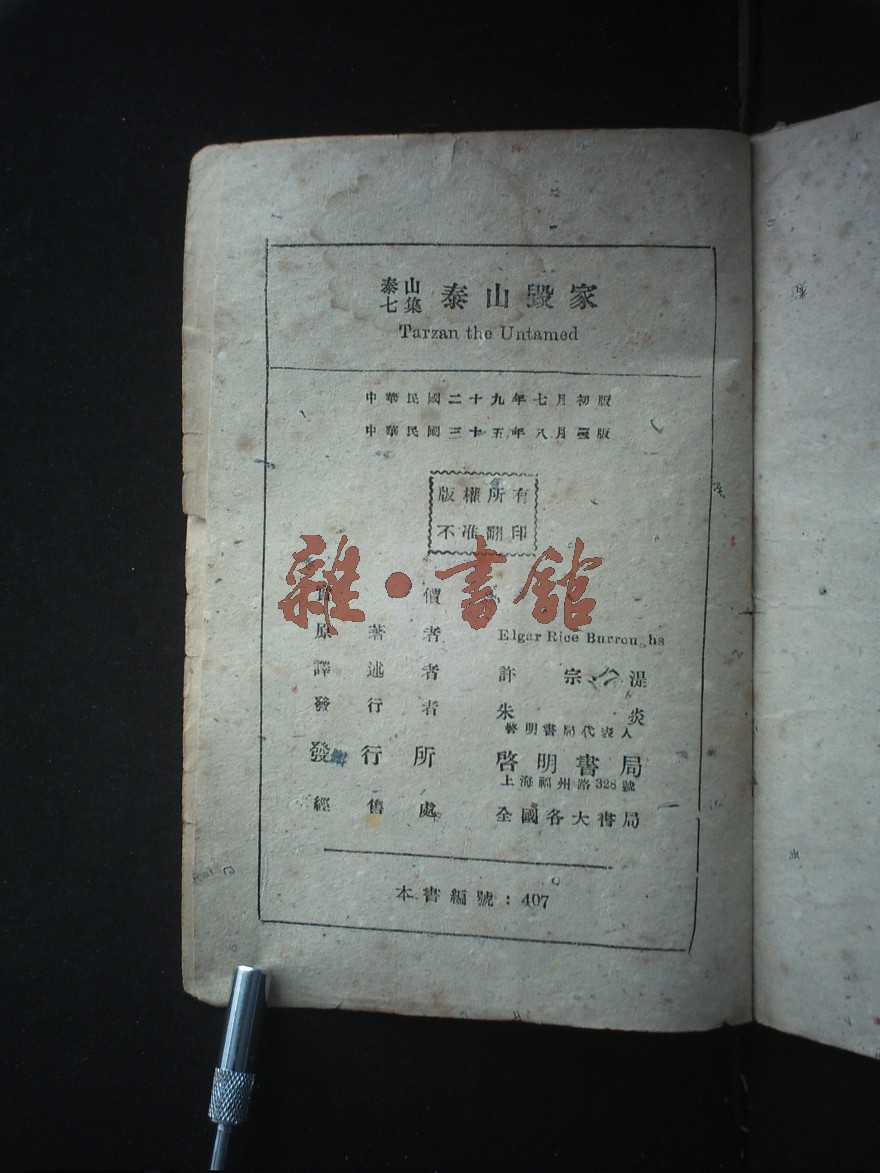 泰山
七集 泰山毀家
Tarzan the Untamed
中華民國二十九年七月初版
中華民國三十五年八月三版
版權所有
不准翻印
雜·書館
價
原著者 Elgar Rice Burroughs
譯述者 許宗 湜
發行者 朱炎
啓明書局代表人
發行所 啓明書局
上海福州路328號
經售處 全國各大書局
本書編號：407